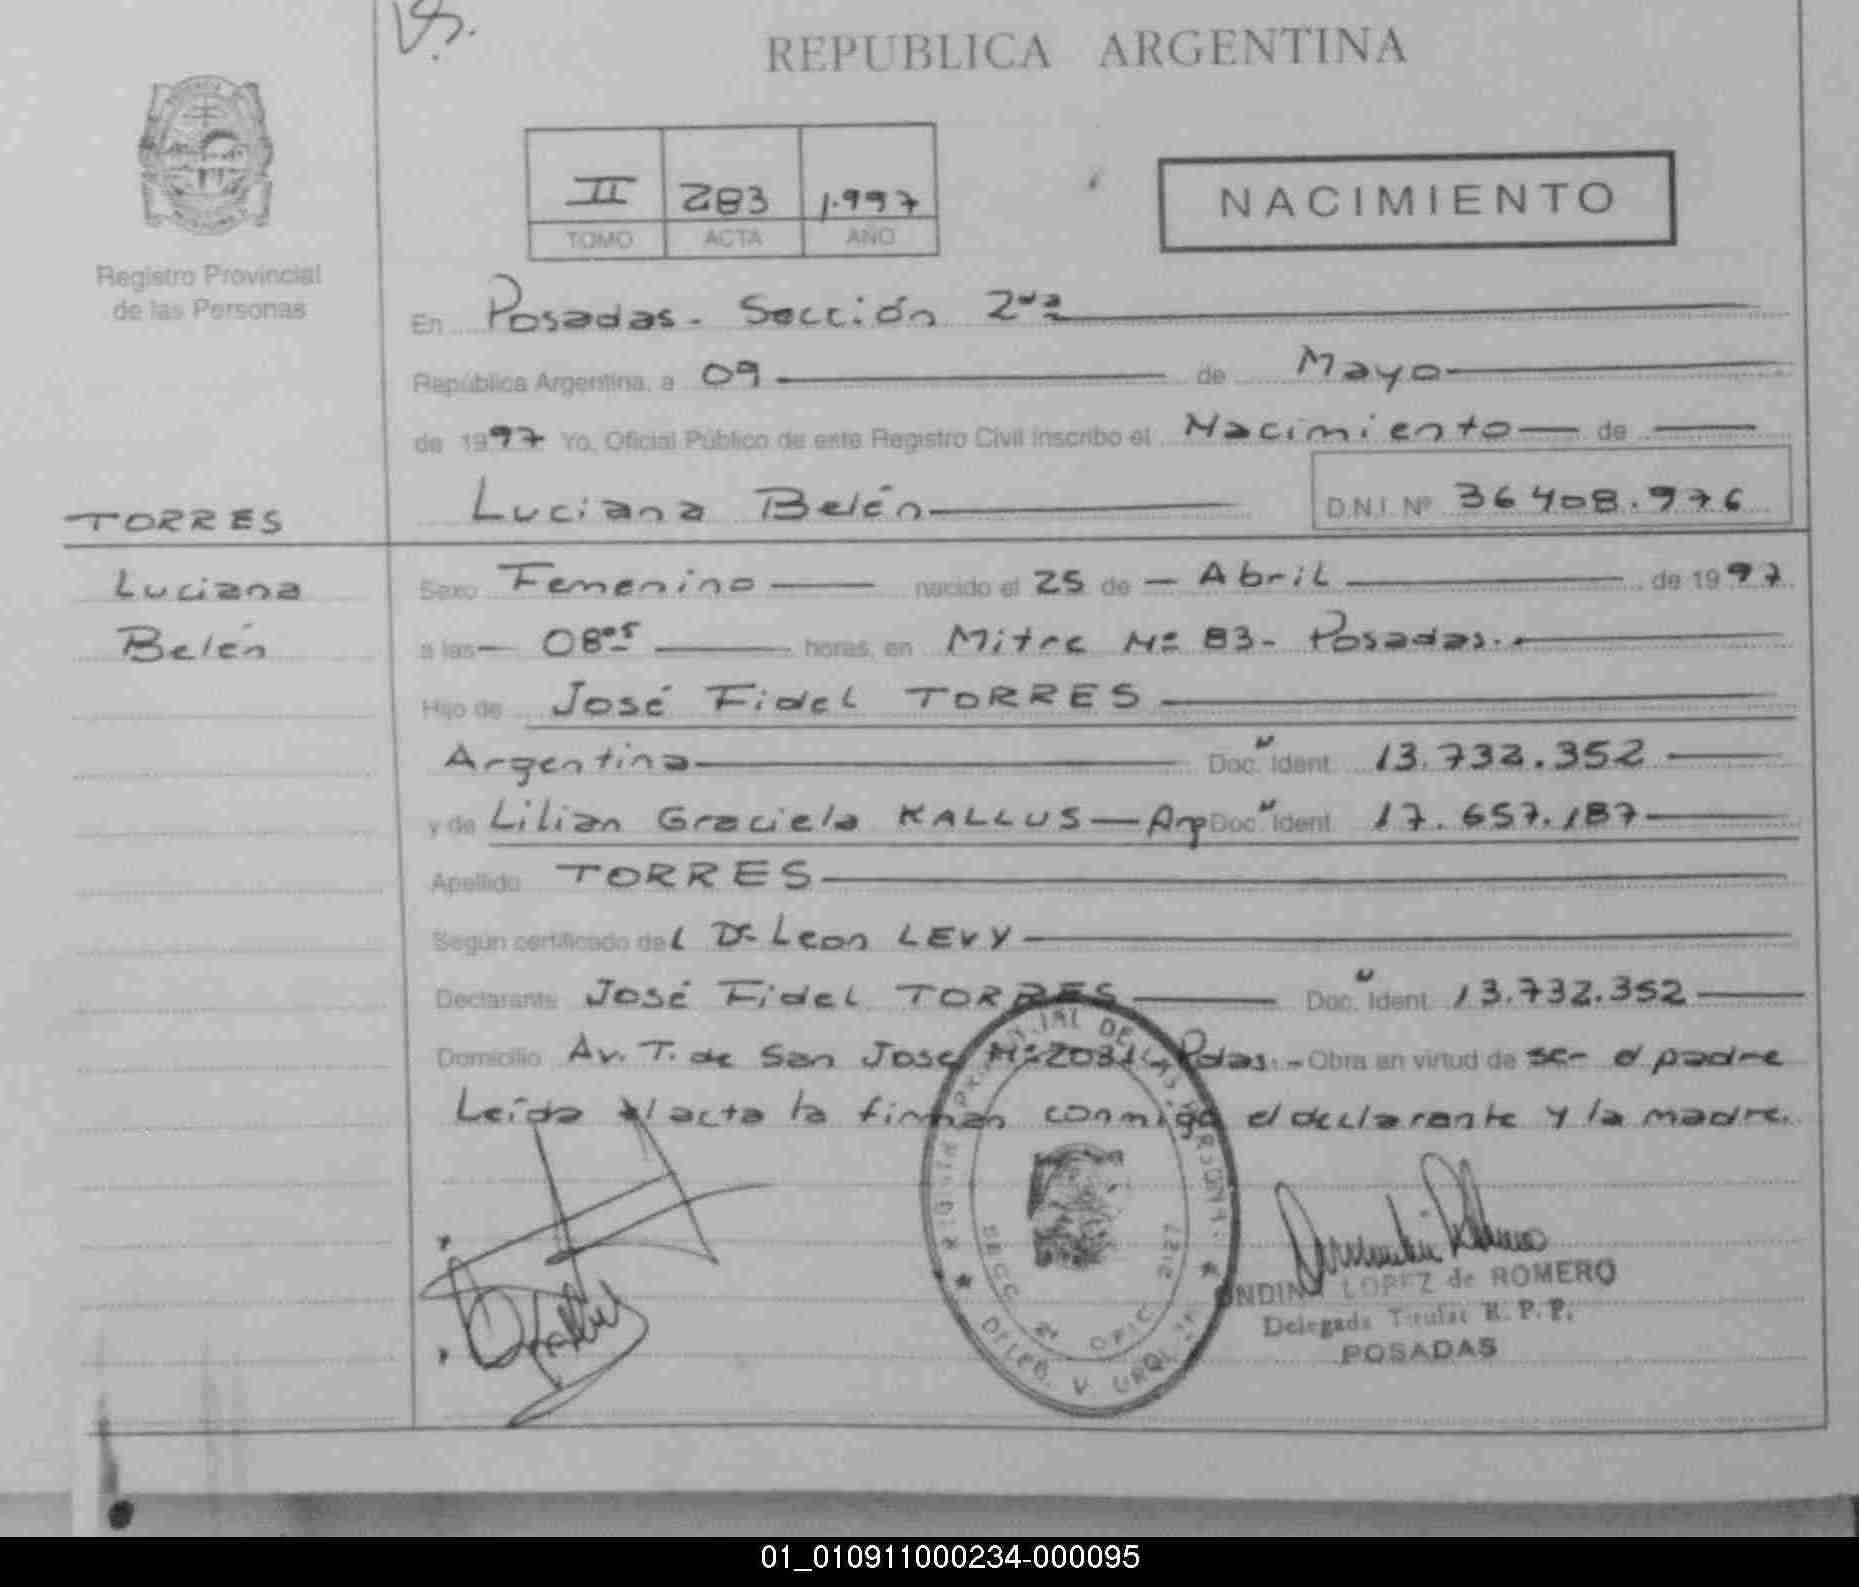 REPUBLICA ARGENTINA
II 283 1.997
TOMO ACTA AÑO
NACIMIENTO
Registro Provincial
de las Personas
En Posadas. Sección 2da
República Argentina, a 09 de Mayo
de 1997 Yo, Oficial Público de este Registro Civil inscribo el Nacimiento de
Luciana Belén D.N.I. Nº 36408.976
TORRES
Luciana
Belén
Sexo Femenino nacido el 25 de Abril de 1997
a las 08:05 horas, en Mitre Nº 83- Posadas.
Hijo de José Fidel TORRES
Argentina Doc. Ident. 13.732.352
y de Lilian Graciela KALLUS - Arg Doc. Ident. 17.657.187
Apellido TORRES
Según certificado del Dr Leon LEVY
Declarante José Fidel TORRES Doc. Ident. 13.732.352
Domicilio Av. T. de San José Pdas.- Obra en virtud de ser el padre
Leída el acta la firman conmigo el declarante y la madre.
LOPEZ de ROMERO
Delegada Titular R. P. P.
POSADAS
01_010911000234-000095